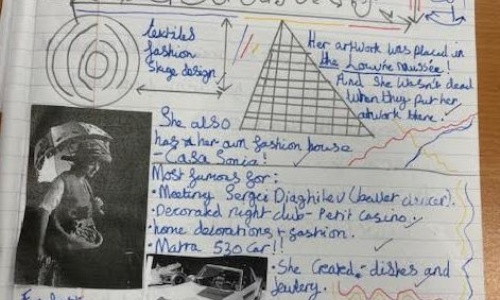 textiles
fashion
stage design
Her artwork was placed in
the Louvre
And she wasn't dead
When they put her
artwork there!
She also
has her own fashion house
- Casa Sonia!
Most famous for:
• Meeting Sergei Diaghilev (ballet dancer).
• Decorated night club - Petit Casino.
• home decorations + fashion.
• Matra 530 car!!
• She created - dishes and
jewlery.